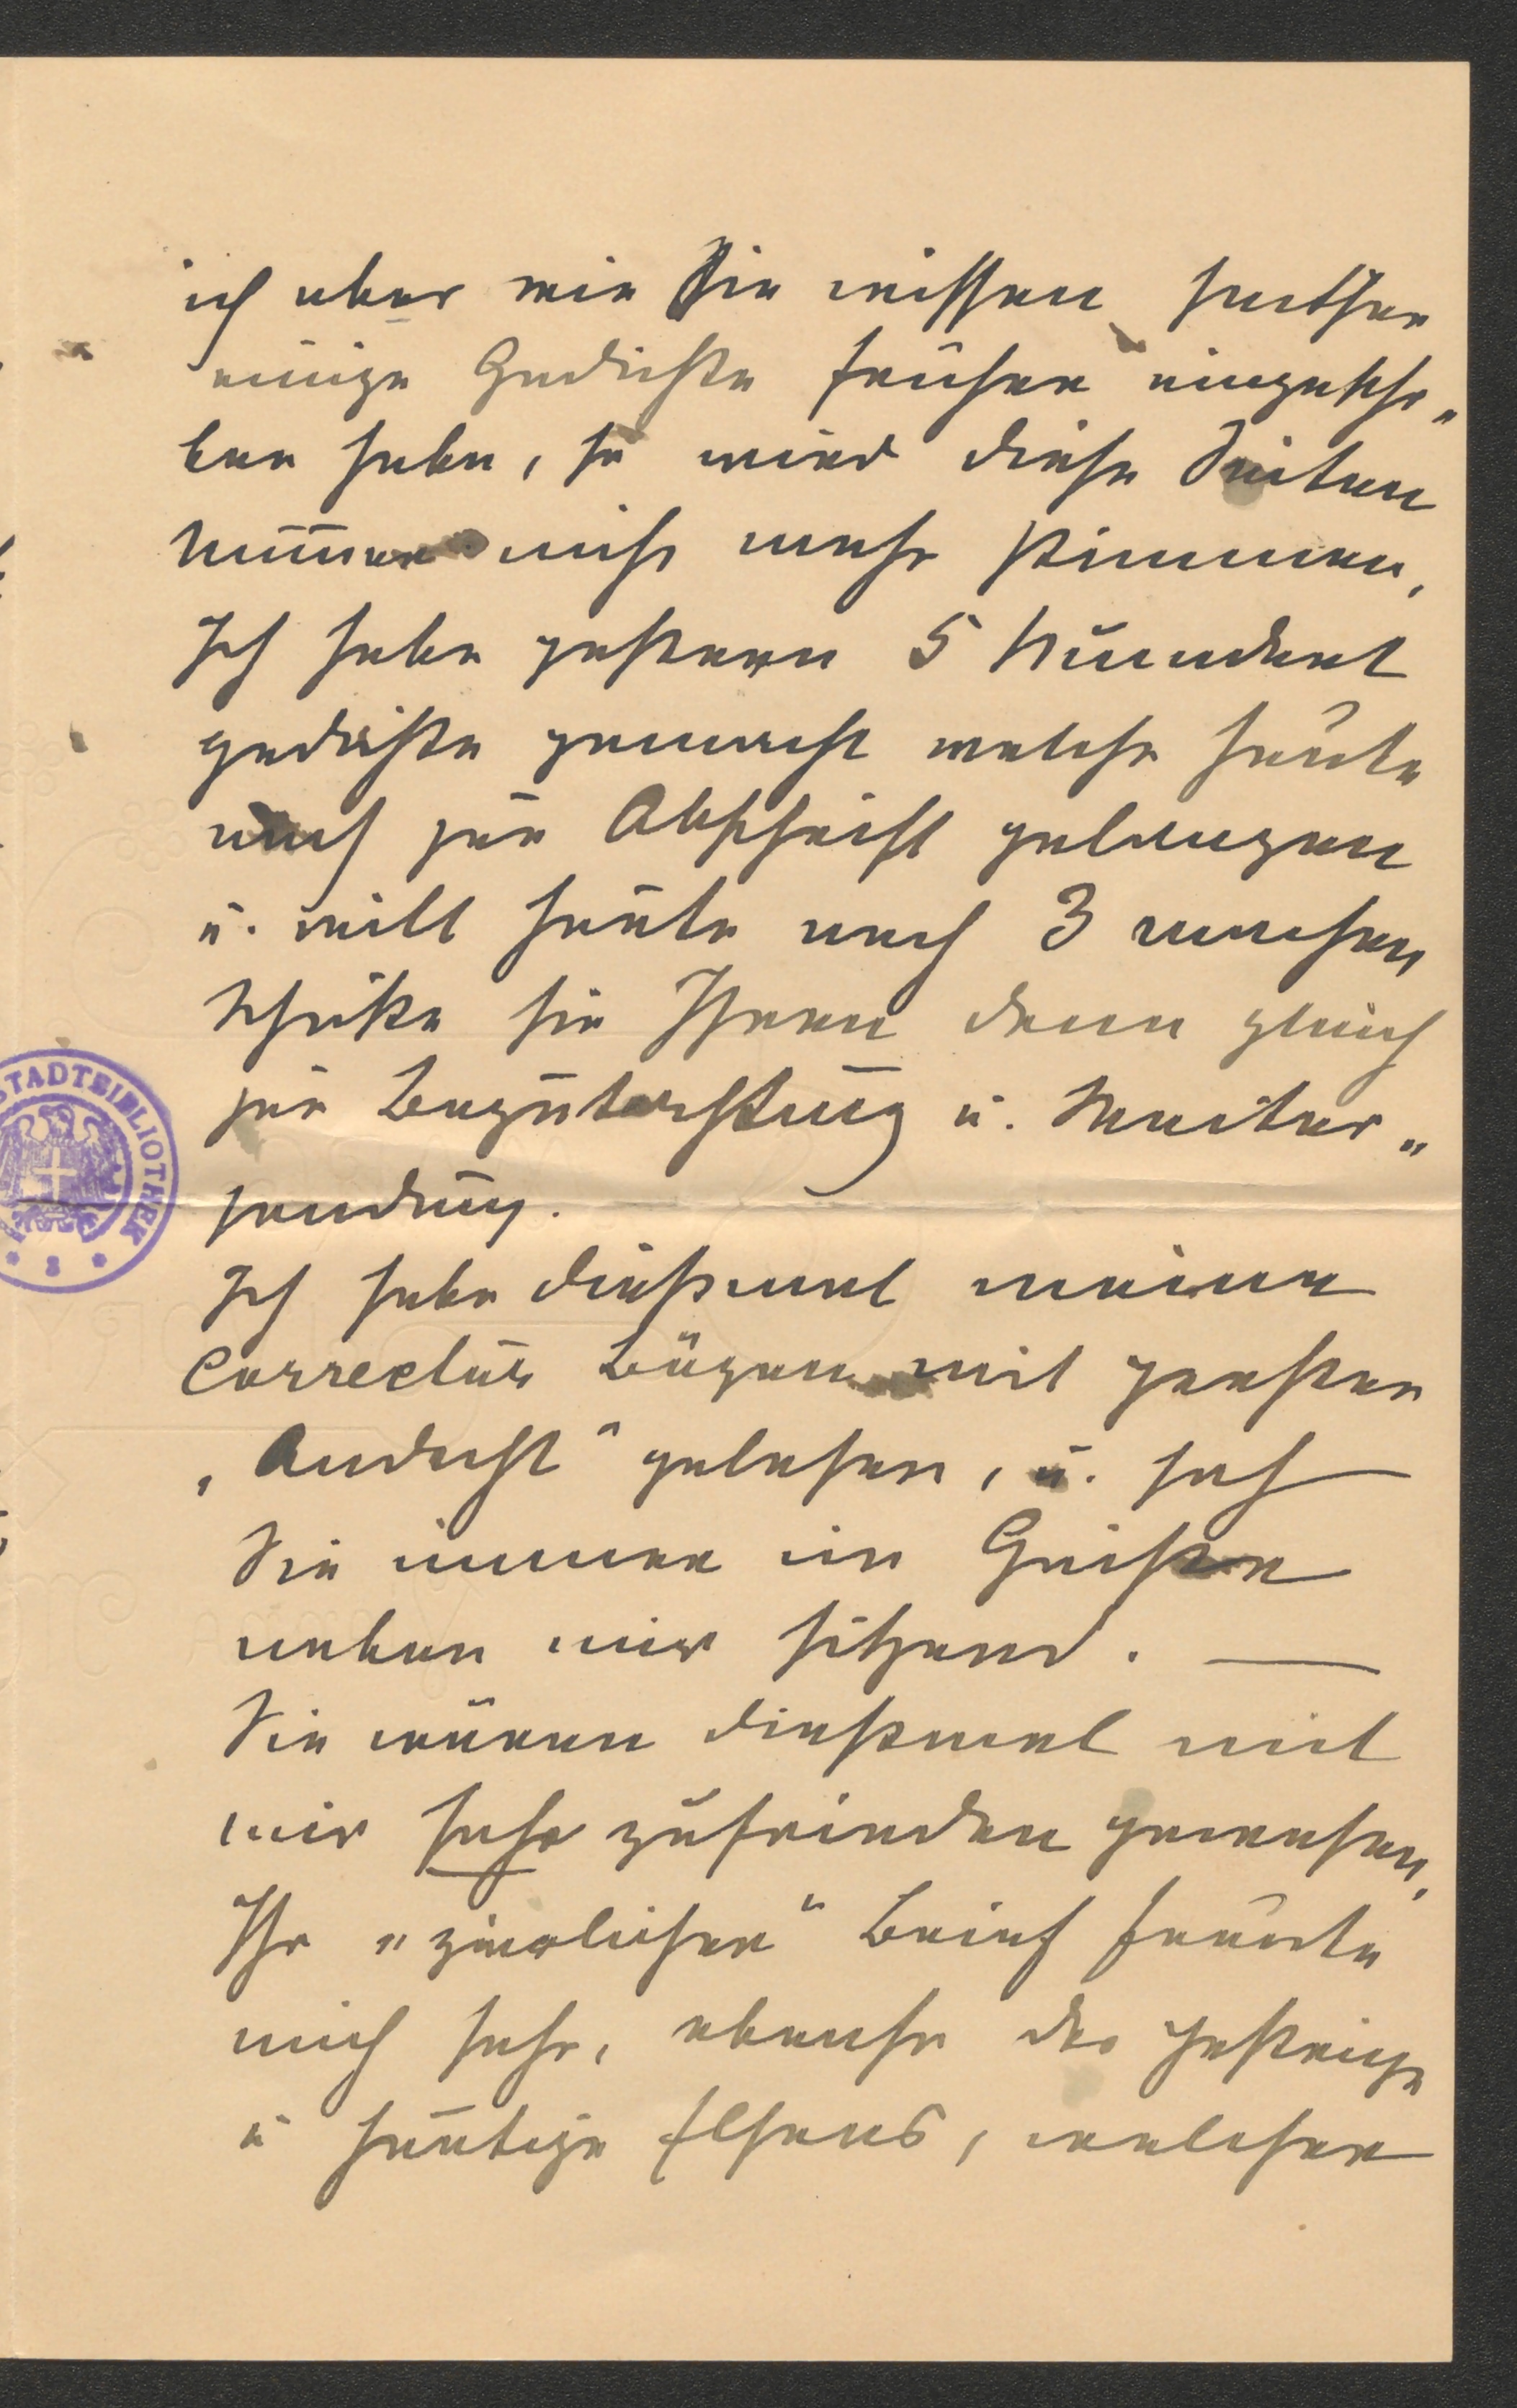 ich aber wie Sie wissen seither
einige Gedichte früher eingescho„
ben habe, so wird diese Seiten
Numer nicht mehr stimmen,
Ich habe gestern 5 Mundart
gedichte gemacht welche heute
noch zur Abschrift gelangen
u. will heute noch 3 machen
schicke sie Ihnen dann gleich
zur Begutachtung u. Weiter„
sendung.
Ich habe diesmal meine
Correctur Bögen mit großer
„Andacht“ gelesen, u. sah
Sie immer im Geiste
neben mir sitzend. —
Sie wären diesmal mit
mir sehr zufrieden gewesen,
Ihr „zierlicher“ Brief freute
mich sehr, ebenso der gestrige
u heutige , welcher
STADTBIBLIOTHEK